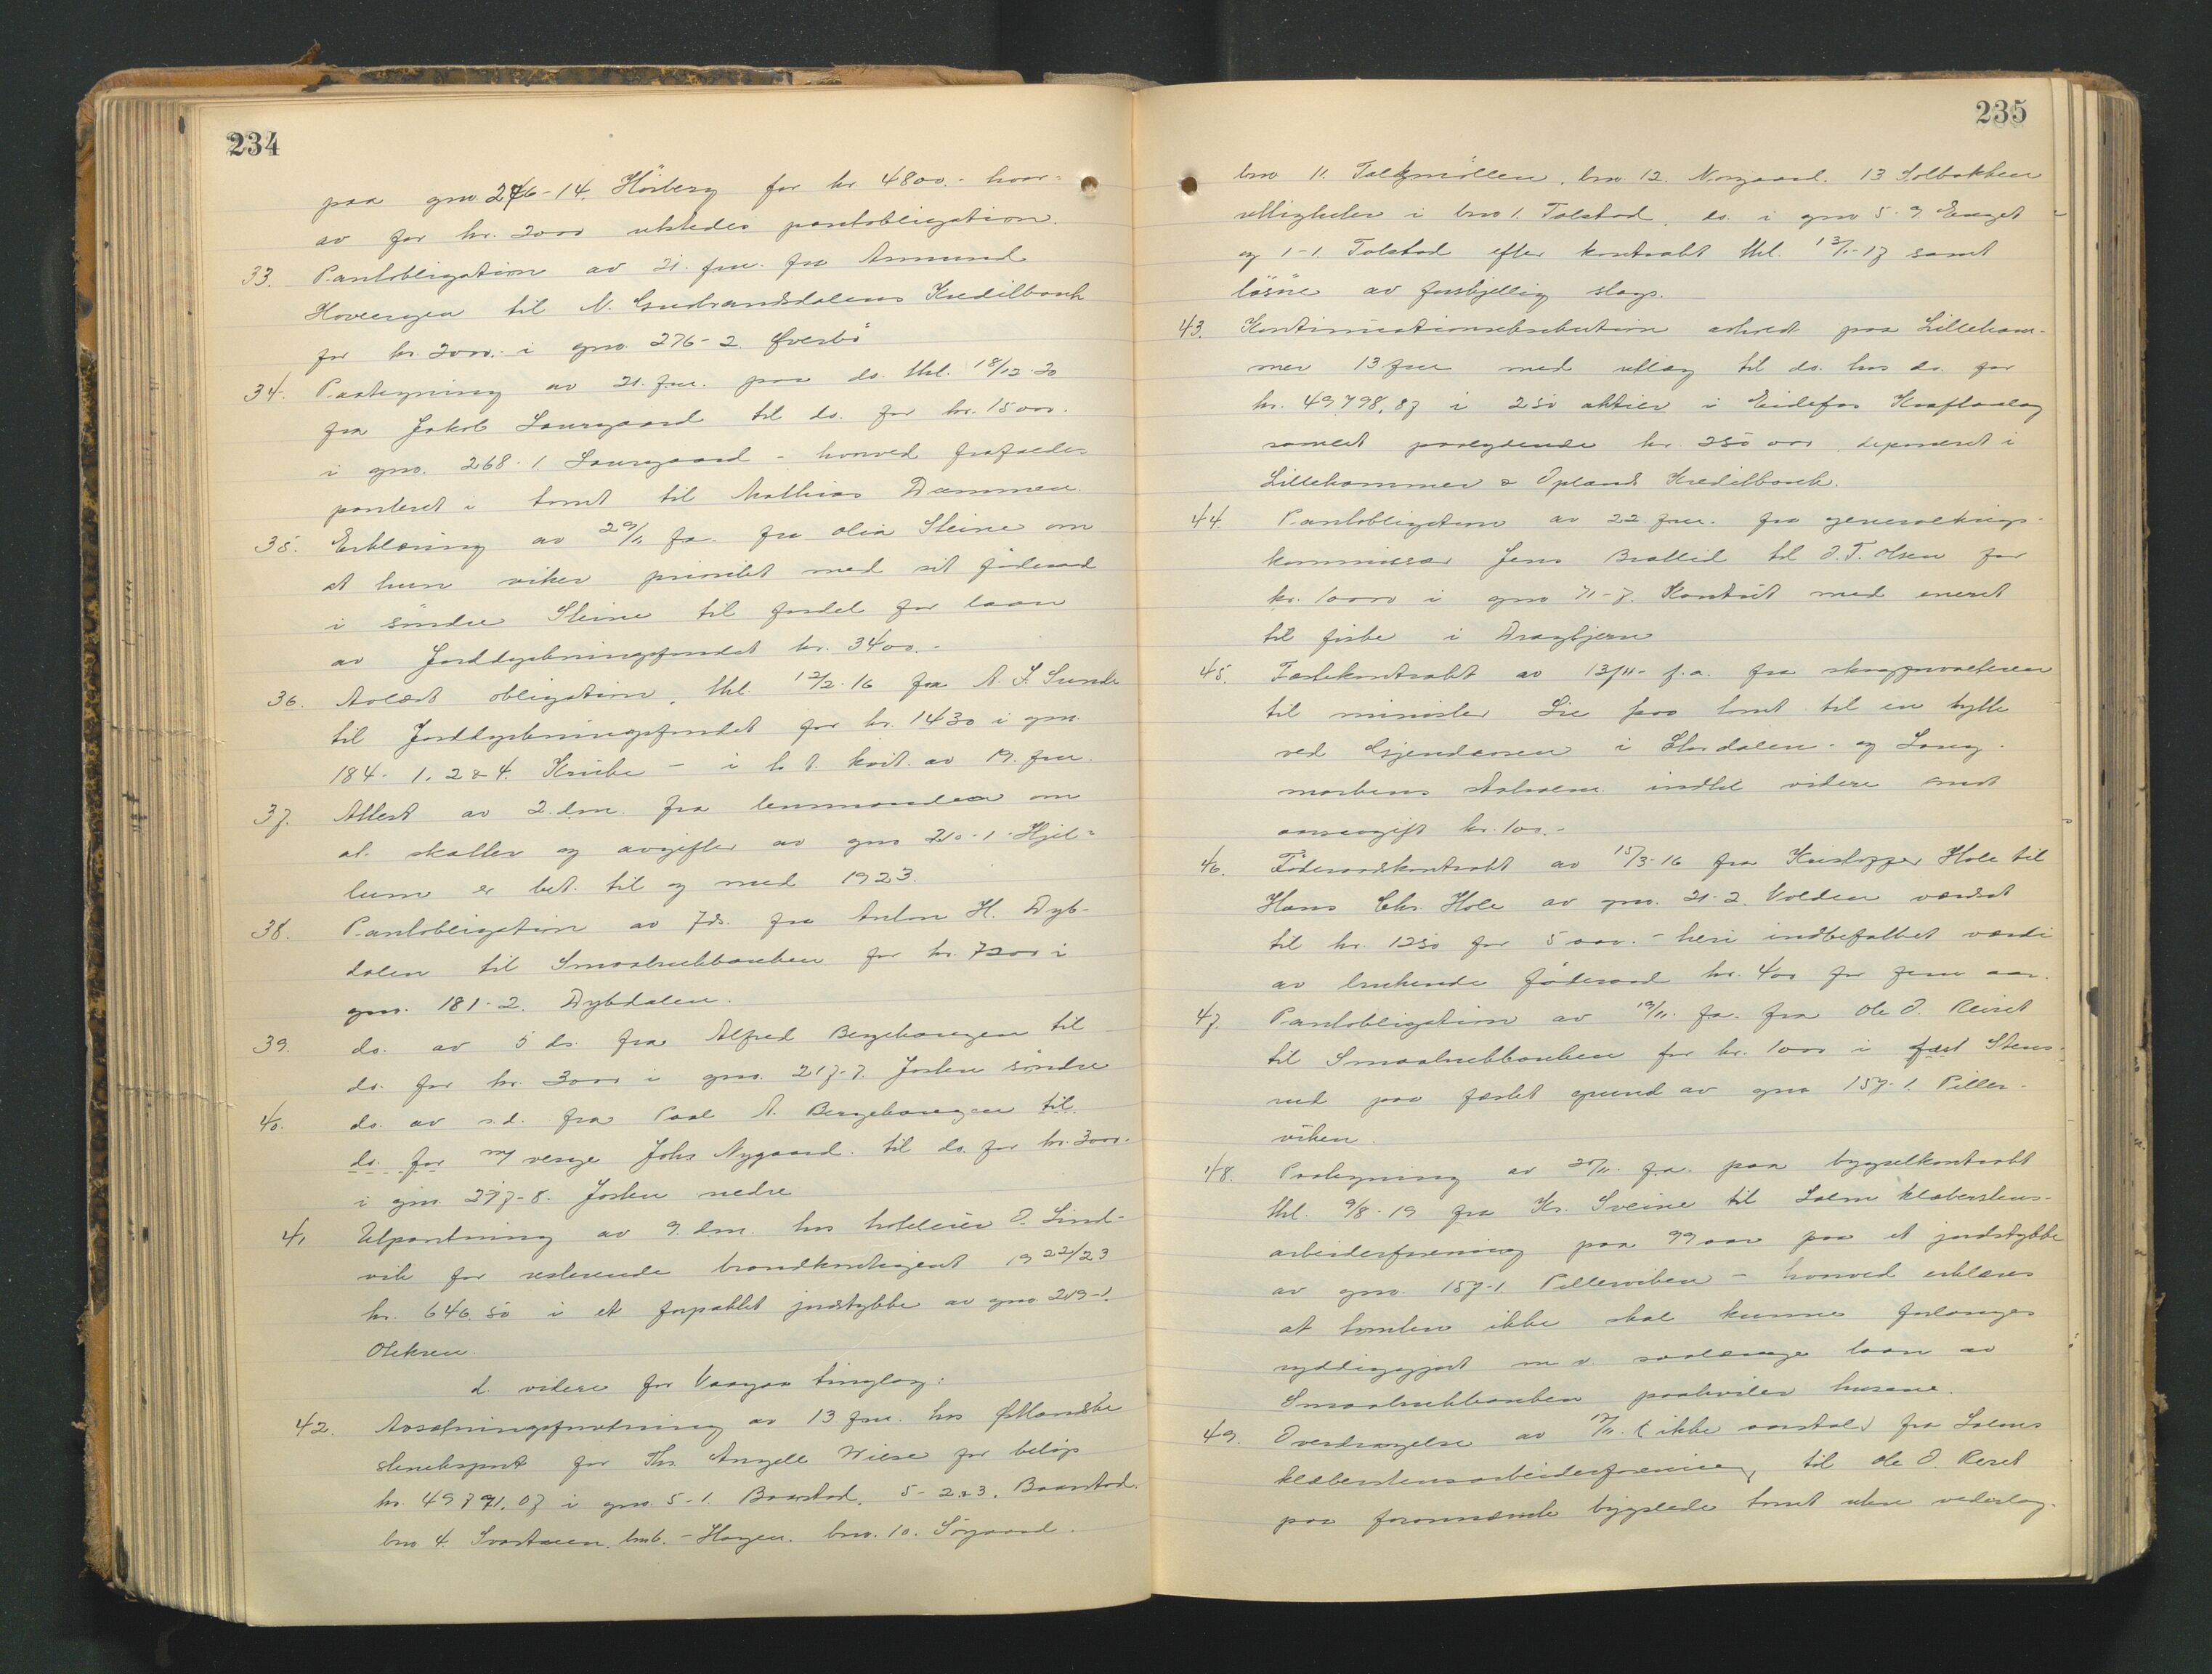 234
paa gno 276-14. Hörberg for kr 4800.- hvor-
av for kr. 2000 utstedes pantobligation.
33. Pantobligation av 21. fm. fra Amund
til N. Gudbrandsdalens Kreditbank
for kr. 2000.- i gno. 276-2 Øverbö
34. Paategning av 21. fm. paa do. thl. 18/12-20
fra Jakob Laurgaard til do. for kr. 15000.
i gno. 268-1. Laurgaard - hvorved frafaldes
panteret i tomt til Mathias Dammen.
35. Erklæring av 29/11 fa. fra Olia Steine om
at hun viker prioritet med sit föderaad
i söndre Steine til fordel for laan
av Jorddyrkningsfondet kr. 3400.-
36. Avlæst obligation, thl. 12/2-16 fra A. J. Sunde
til Jorddyrkningsfondet for kr. 1430 i gno.
184-1, 2 & 4. Kruke - i h. t. kvit. av 19. fm.
37. Attest av 2. dm. fra lensmanden om
at skatter og avgifter av gno 210-1 Hjel-
lum er bet. til og med 1923.
38. Pantobligation av 7 ds. fra Anton H. Dyb-
dalen til Smaabrukbanken for kr. 7200 i
gno. 181-2. Dybdalen.
39. do. av 5 ds. fra Alfred Bergehaugen til
do. for kr. 3000 i gno. 217-7. Jorken söndre
40. do. av s.d. fra Paal A. Bergehaugen til
do. for m/ verge Johs Nygaard. til do. for kr. 3000.
i gno. 217-8. Jorken nedre
41 Utpantning av 9. dm. hos hoteleier O. Lind-
vik for resterende brandkontingent 1922/23
kr. 646.50 i et forpaktet jordstykke av gno. 219-1.
d. videre for Vaagaa tinglag:
42. Avsetningsforretning av 13 fm. hos Østlandske
for Th. Angell Wiese for belöp
kr. 49791.07 i gno. 5-1. Baarstad, 5-2 & 3. Baarstad.
bno 4. bno 6. - Hagen. bno. 10. Sörgaard.
235
bno 11. bno. 12. Norgaard. 13 Solbakken
rettigheter i bno 1. Tolstad, do. i gno 5-9. Enget
og 1-1 Tolstad efter kontrakt thl. 13/1-17 samt
lösöre av forskjellig slags.
43. avholdt paa Lilleham-
mer 13 fm med utlæg til do. hos do. for
kr. 49798,87 i 250 aktier i Eidefos Kraftanlæg
samlet paalydende kr. 25000. deponeret i
Lillehammer & Oplands Kreditbank.
44. Pantobligation av 22. fm. fra generalkrigs-
kommissær Jens Bratlid til O. T. Olsen for
kr. 10000 i gno 71-7. med eneret
til fiske i
45. Festekontrakt av 13/11- f.a. fra skogforvalteren
til minister Lie paa tomt til en hytte
ved Gjendeosen i Stordalen og Lang-
indtil videre mot
aarsavgift kr. 100.-
46. Föderaadskontrakt av 15/3-16 fra Kristoffer Hole til
Hans Chr. Hole av gno. 21-2. Volden værdsat
til kr. 1250 for 5 aar. - heri indbefattet værdi
av kr. 400 for fem aar.
47. Pantobligation av 19/11. f.a. fra Ole O. Reiret
til Smaabrukbanken for kr. 1000 i Stens-
rud paa festet grund av gno 157-1. Piller-
viken.
48. Paategning av 20/11. f.a. paa bygselkontrakt
thl. 9/8-19 fra Kr. Sveine til Lalm klæberstens-
arbeiderforening paa 99 aar paa et jordstykke
av gno. 157-1 Pillerviken - hvorved erklæres
at tomten ikke skal kunne forlanges
ryddiggjort m v. saalænge laan av
Smaabrukbanken paahviler husene.
49. Overdragelse av 17/11. (ikke aarstal) fra Lalms
klæberstensarbeiderforening, til Ole O. Reret
paa forannævnte bygslede tomt uten vederlag.